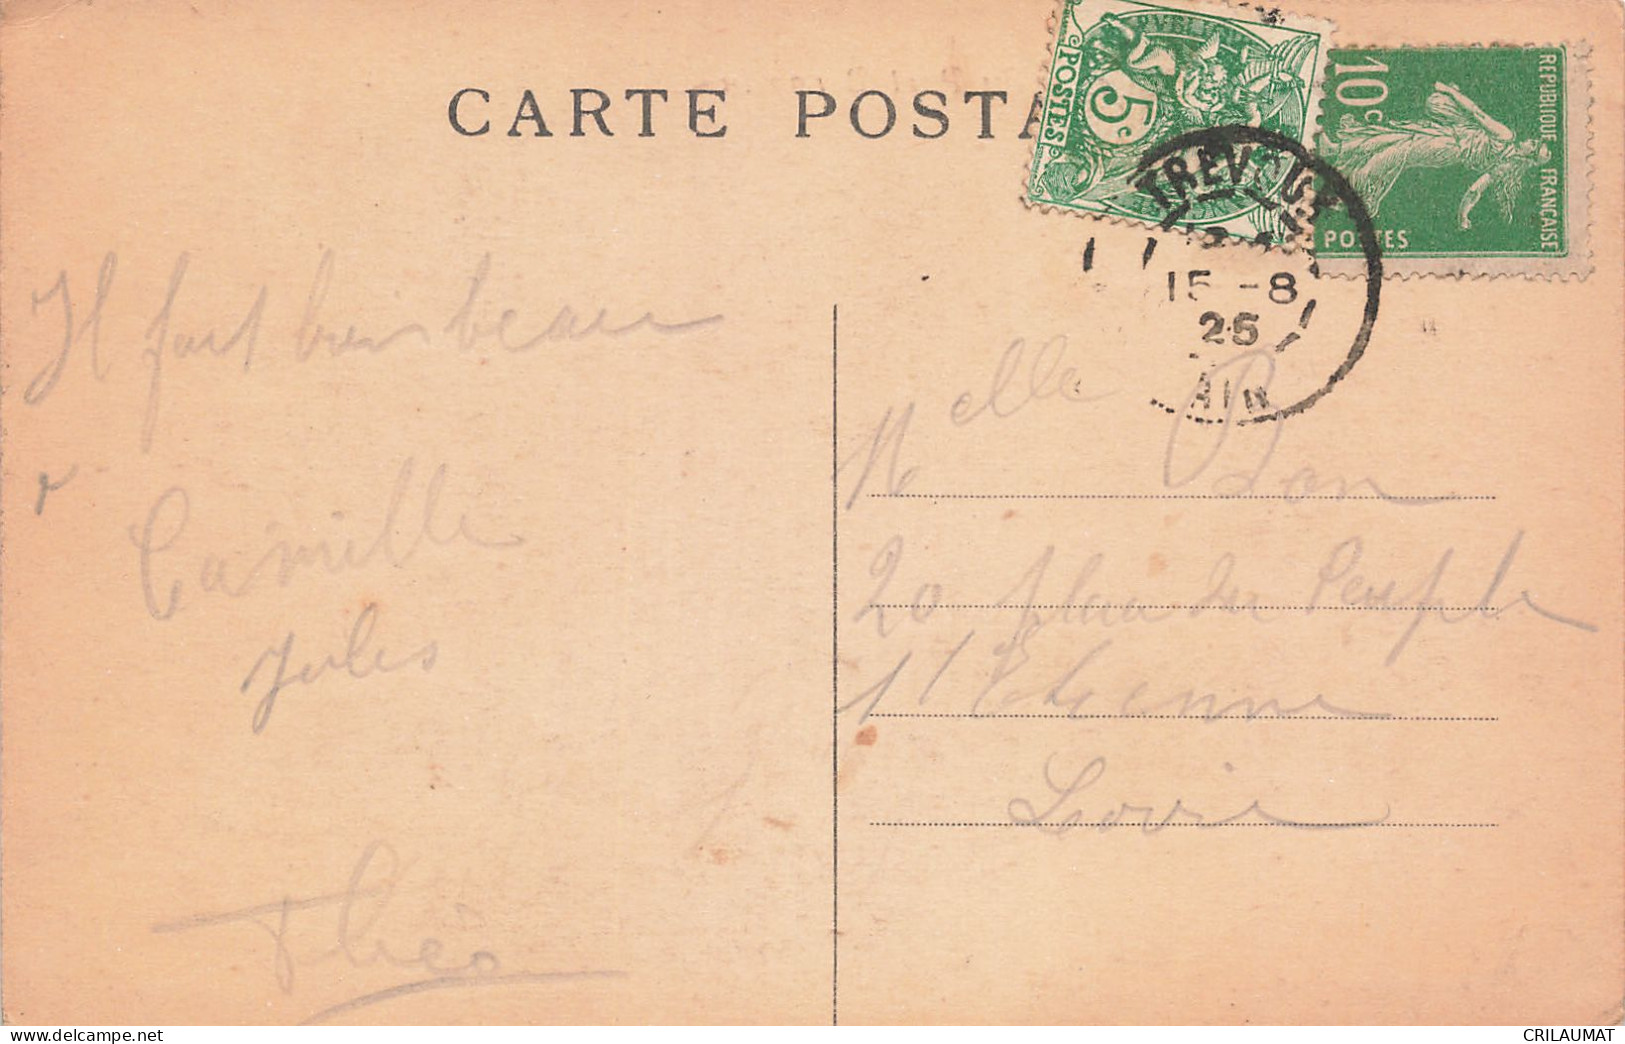 CARTE POSTA
REPUBLIQUE FRANÇAISE
10c
POSTES
POSTES
5c
POSTES
TREVOUX
15 -8
25
AIN
Il fait très beau
Camille
Jules
Théo
Melle Bon
20 place du Peuple
St Etienne
Loire
CRILAUMAT